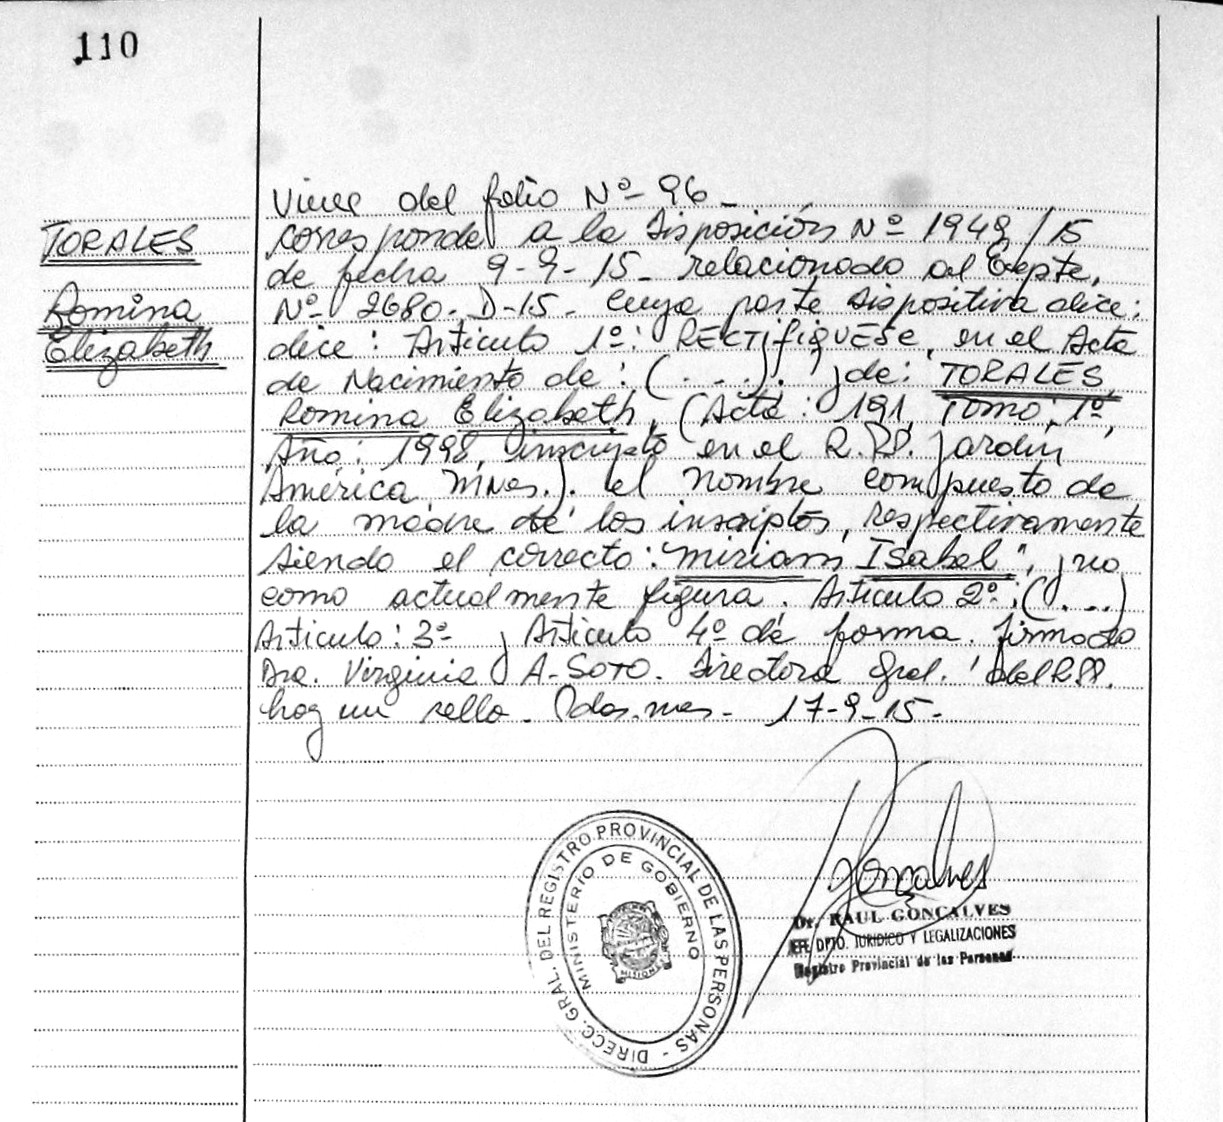 110
TORALES
Romina
Elizabeth
Viene del folio Nº 96 -
corresponde a la Disposición Nº 1948/15
de fecha 9-9-15- relacionado al Expte.
Nº 2680-D-15- cuya parte dispositiva dice:
dice: Artículo 1º: RECTIFIQUESE, en el Acta
de Nacimiento de: (....). y de: TORALES,
Romina Elizabeth, (Acta: 191, Tomo: 1º,
Año: 1998, inscripto en el R.PP. Jardín
América, Mnes.). el nombre compuesto de
la madre de los inscriptos, respectivamente
siendo el correcto: "Miriam Isabel", y no
como actualmente figura. Artículo 2º: (....)
Artículo: 3º y Artículo 4º de forma. firmado
Dra. Virginia A. SOTO. Directora Gral. del R.PP.
hay un sello. Pdas. mes- 17-9-15-
DIRECC. GRAL. DEL REGISTRO PROVINCIAL DE LAS PERSONAS -
MINISTERIO DE GOBIERNO
MISIONES
Goncalves
Dr. RAUL GONCALVES
JEFE DPTO. JURIDICO Y LEGALIZACIONES
Registro Provincial de las Personas